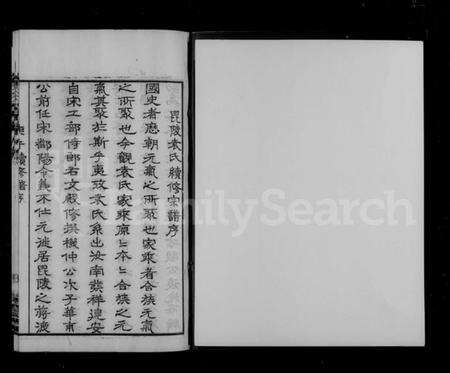 毘陵袁氏續修宗譜序
國史者歷朝元氣之所聚也家乘者合族元氣
之所聚也今觀袁氏家乘原原本本合族之元
氣其聚於斯乎夷攷袁氏系出汝南發祥建安
自宋工部侍郎右文殿修撰機仲公次子華甫
公前任宋鄱陽令義不仕元徙居毘陵之蔣渡
FamilySearch